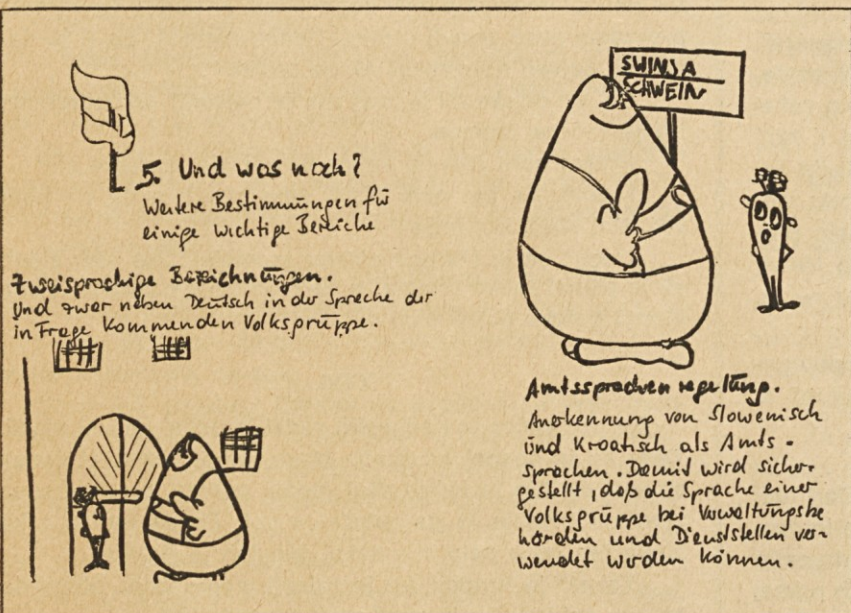 5. Und was noch?
Weitere Bestimmungen für
einige wichtige Bereiche
Zweisprachige Bezeichnungen.
Und zwar neben Deutsch in der Sprache der
in Frage kommenden Volksgruppe.
SWINJA
SCHWEIN
Amtssprachenregelung.
Anerkennung von Slowenisch
und Kroatisch als Amts-
sprachen. Damit wird sicher-
gestellt, daß die Sprache einer
Volksgruppe bei Verwaltungsbe
hörden und Dienststellen ver-
wendet werden können.